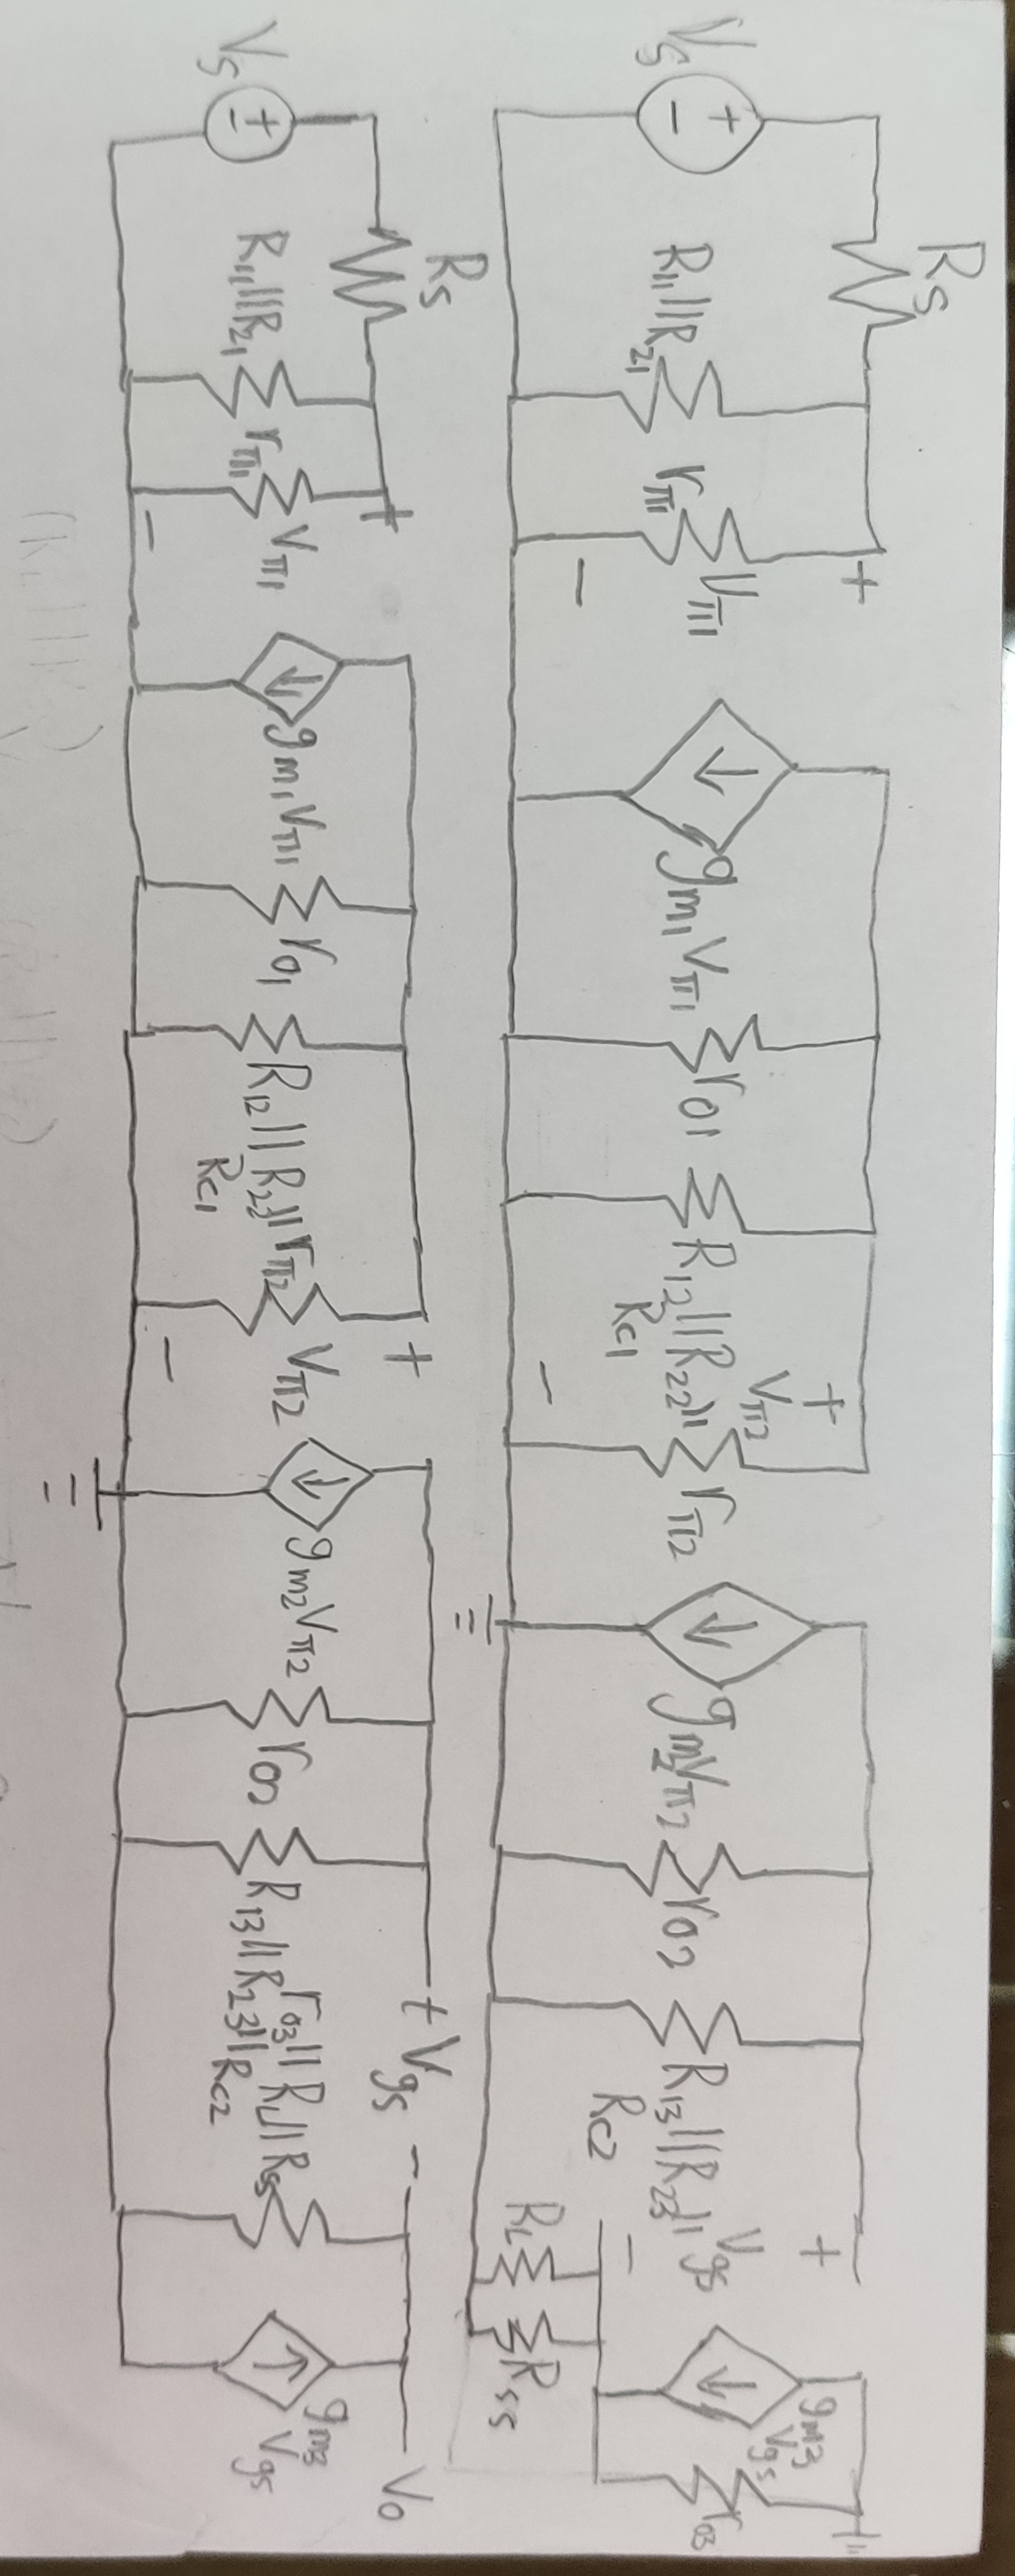 Rs
Vs + − R11||R21 rπ1 + Vπ1 − gm1Vπ1 ro1 R12||R22|| Rc1 + Vπ2 − rπ2 gm2Vπ2 ro2 R13||R23|| Rc2 + Vgs − gm3 Vgs ro3
RL Rss
Rs
Vs + − R11||R21 rπ1 + Vπ1 − gm1Vπ1 ro1 R12||R22||rπ2 Rc1 + Vπ2 − gm2Vπ2 ro2 R13||R23||Rc2 + Vgs − ro3||RL||Rss gm3 Vgs Vo